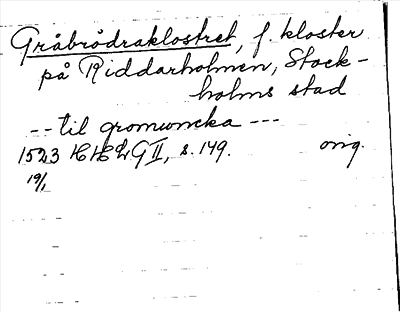 Gråbrödraklostret, f. kloster
på Riddarholmen, Stock-
holms stad
-- til gromwncka ---
1523 HH LG II, s. 149. orig.
19/1